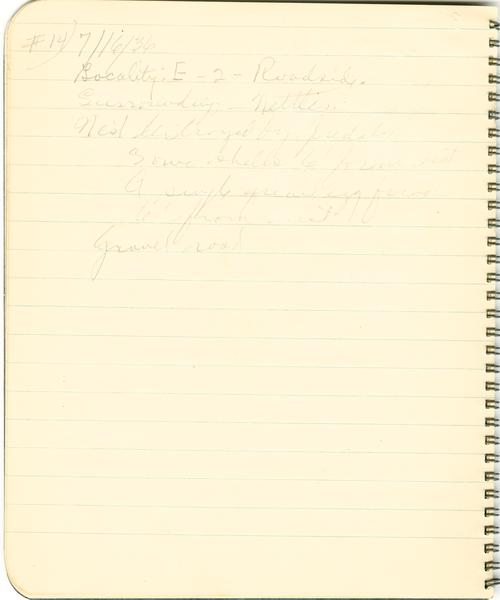 #14) 7/16/36
Locality: E-2- Roadside.
Surrounding - Nettles.
Nest destroyed by
Some shells 6' from nest
A single egg found
6' from nest
Gravel road